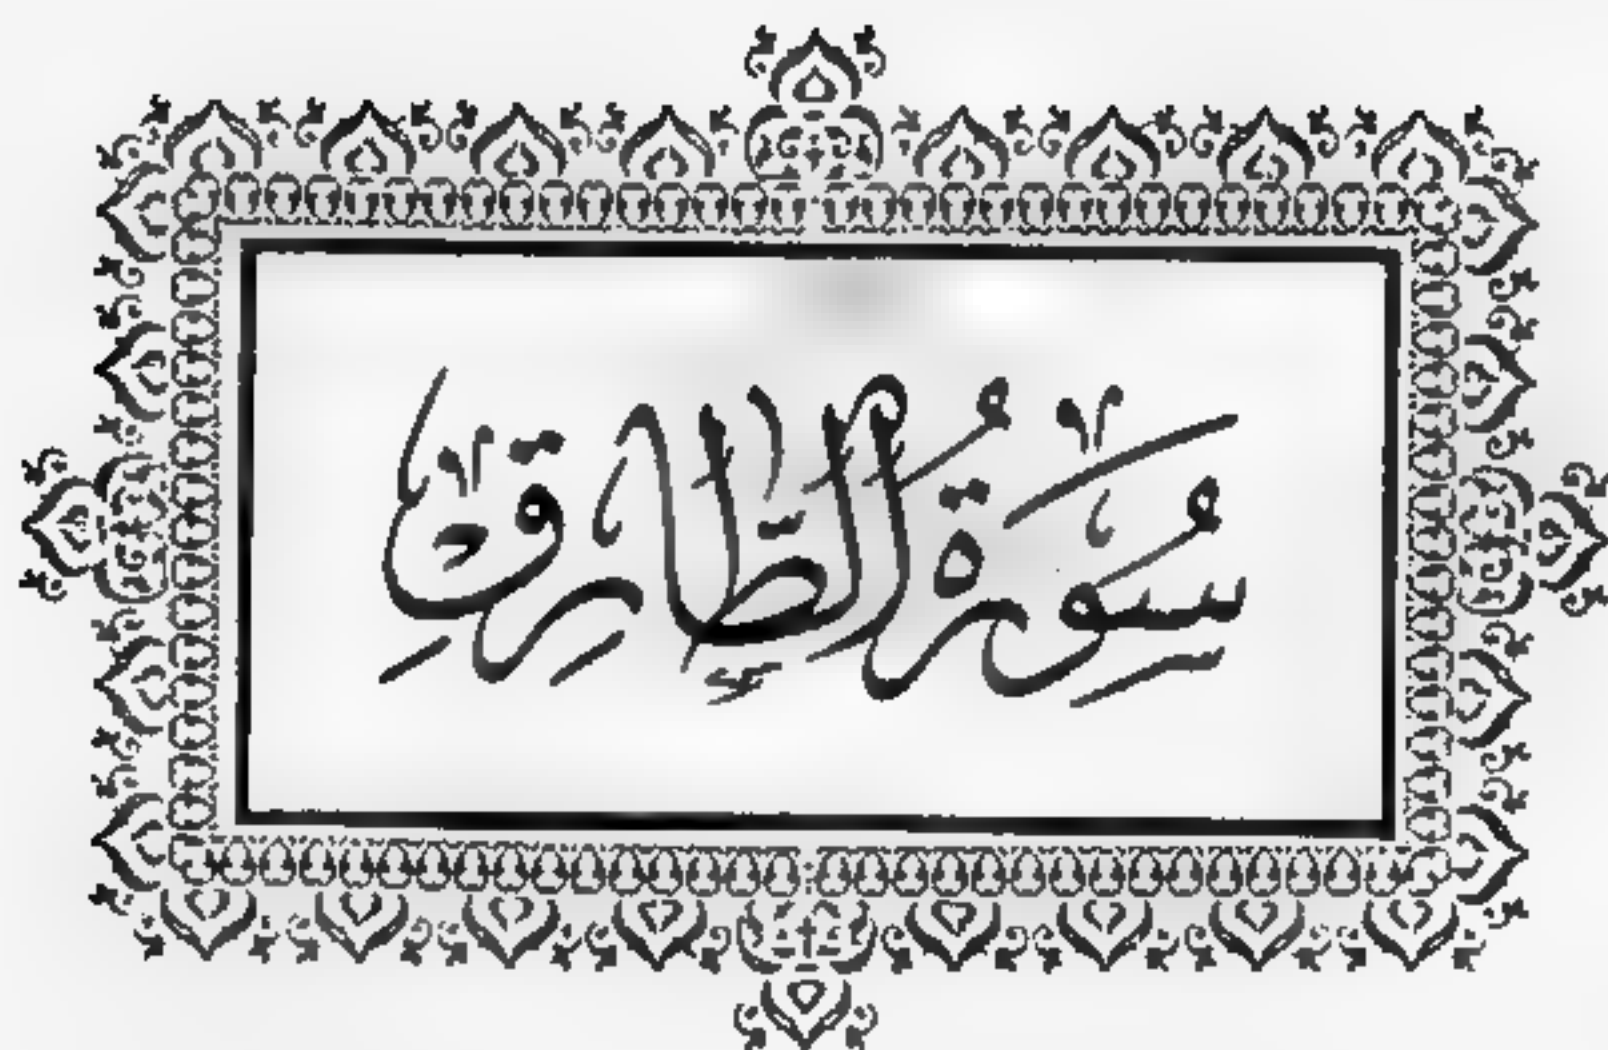 سُورَةُ الطَّارِقِ